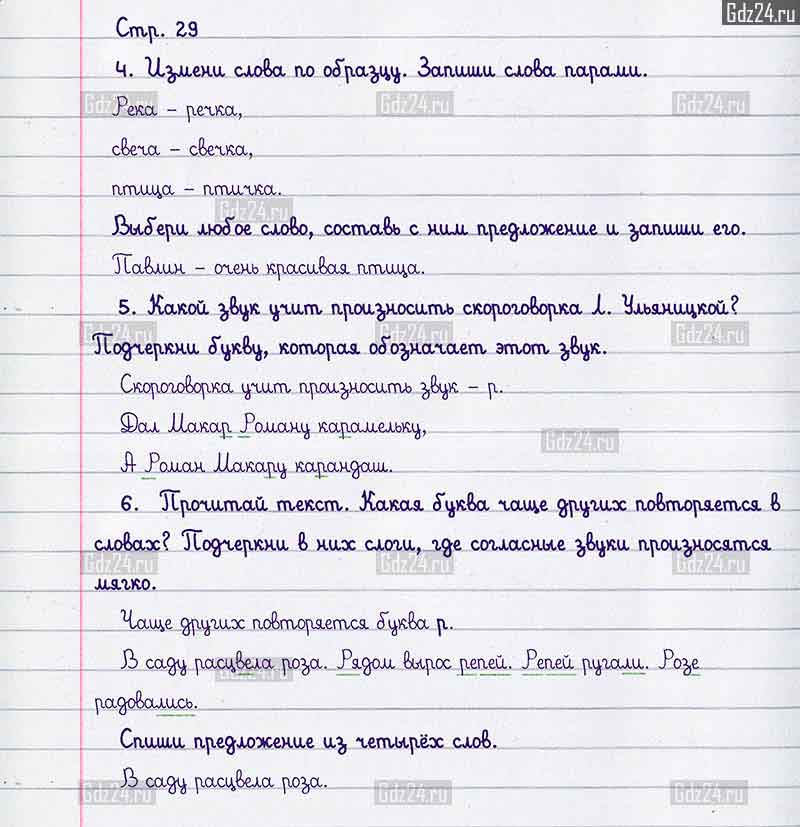 Gdz24.ru
Стр. 29
4. Измени слова по образцу. Запиши слова парами.
Река – речка,
свеча – свечка,
птица – птичка.
Выбери любое слово, составь с ним предложение и запиши его.
Павлин – очень красивая птица.
5. Какой звук учит произносить скороговорка Л. Ульяницкой?
Подчеркни букву, которая обозначает этот звук.
Скороговорка учит произносить звук – р.
Дал Макар Роману карамельку,
А Роман Макару карандаш.
6. Прочитай текст. Какая буква чаще других повторяется в
словах? Подчеркни в них слоги, где согласные звуки произносятся
мягко.
Чаще других повторяется буква р.
В саду расцвела роза. Рядом вырос репей. Репей ругали. Розе
радовались.
Спиши предложение из четырёх слов.
В саду расцвела роза.